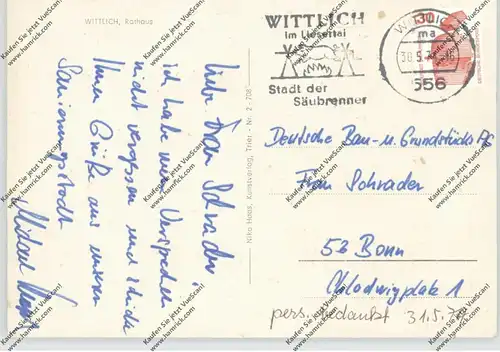 WITTLICH, Rathaus
Liebe Frau Schrader
ich habe mein Versprechen
nicht vergessen und sende
Ihnen Grüße aus unserer
Sanierungsstadt
Michael
Niko Haas, Kunstverlag, Trier - Nr. 2 - 708
WITTLICH
im Liesertal
Stadt der
Säubrenner
30
ma
30.5.
556
Deutsche Bau- u. Grundstücks AG
Frau Schrader
53 Bonn
Chlodwigplatz 1
pers. bedankt 31.5.
Kaufen Sie jetzt VueScan!
www.hamrick.com